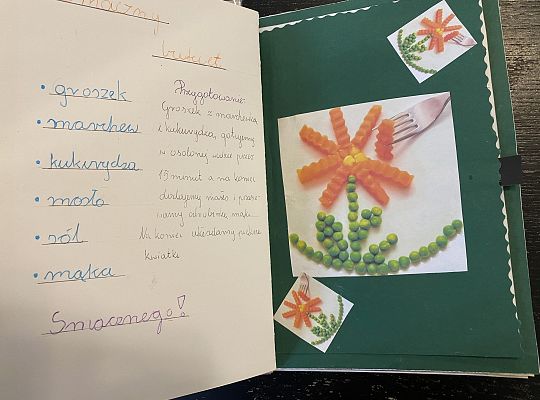 bukiet
• groszek
• marchew
• kukurydza
• masło
• sól
• mąka
Smacznego!
Przygotowanie:
Groszek z marchewką
i kukurydzą, gotujemy
w osolonej wodzie przez
15 minut a na koniec
dodajemy masło i
odrobinę mąki.
Na koniec układamy piękne
kwiatki